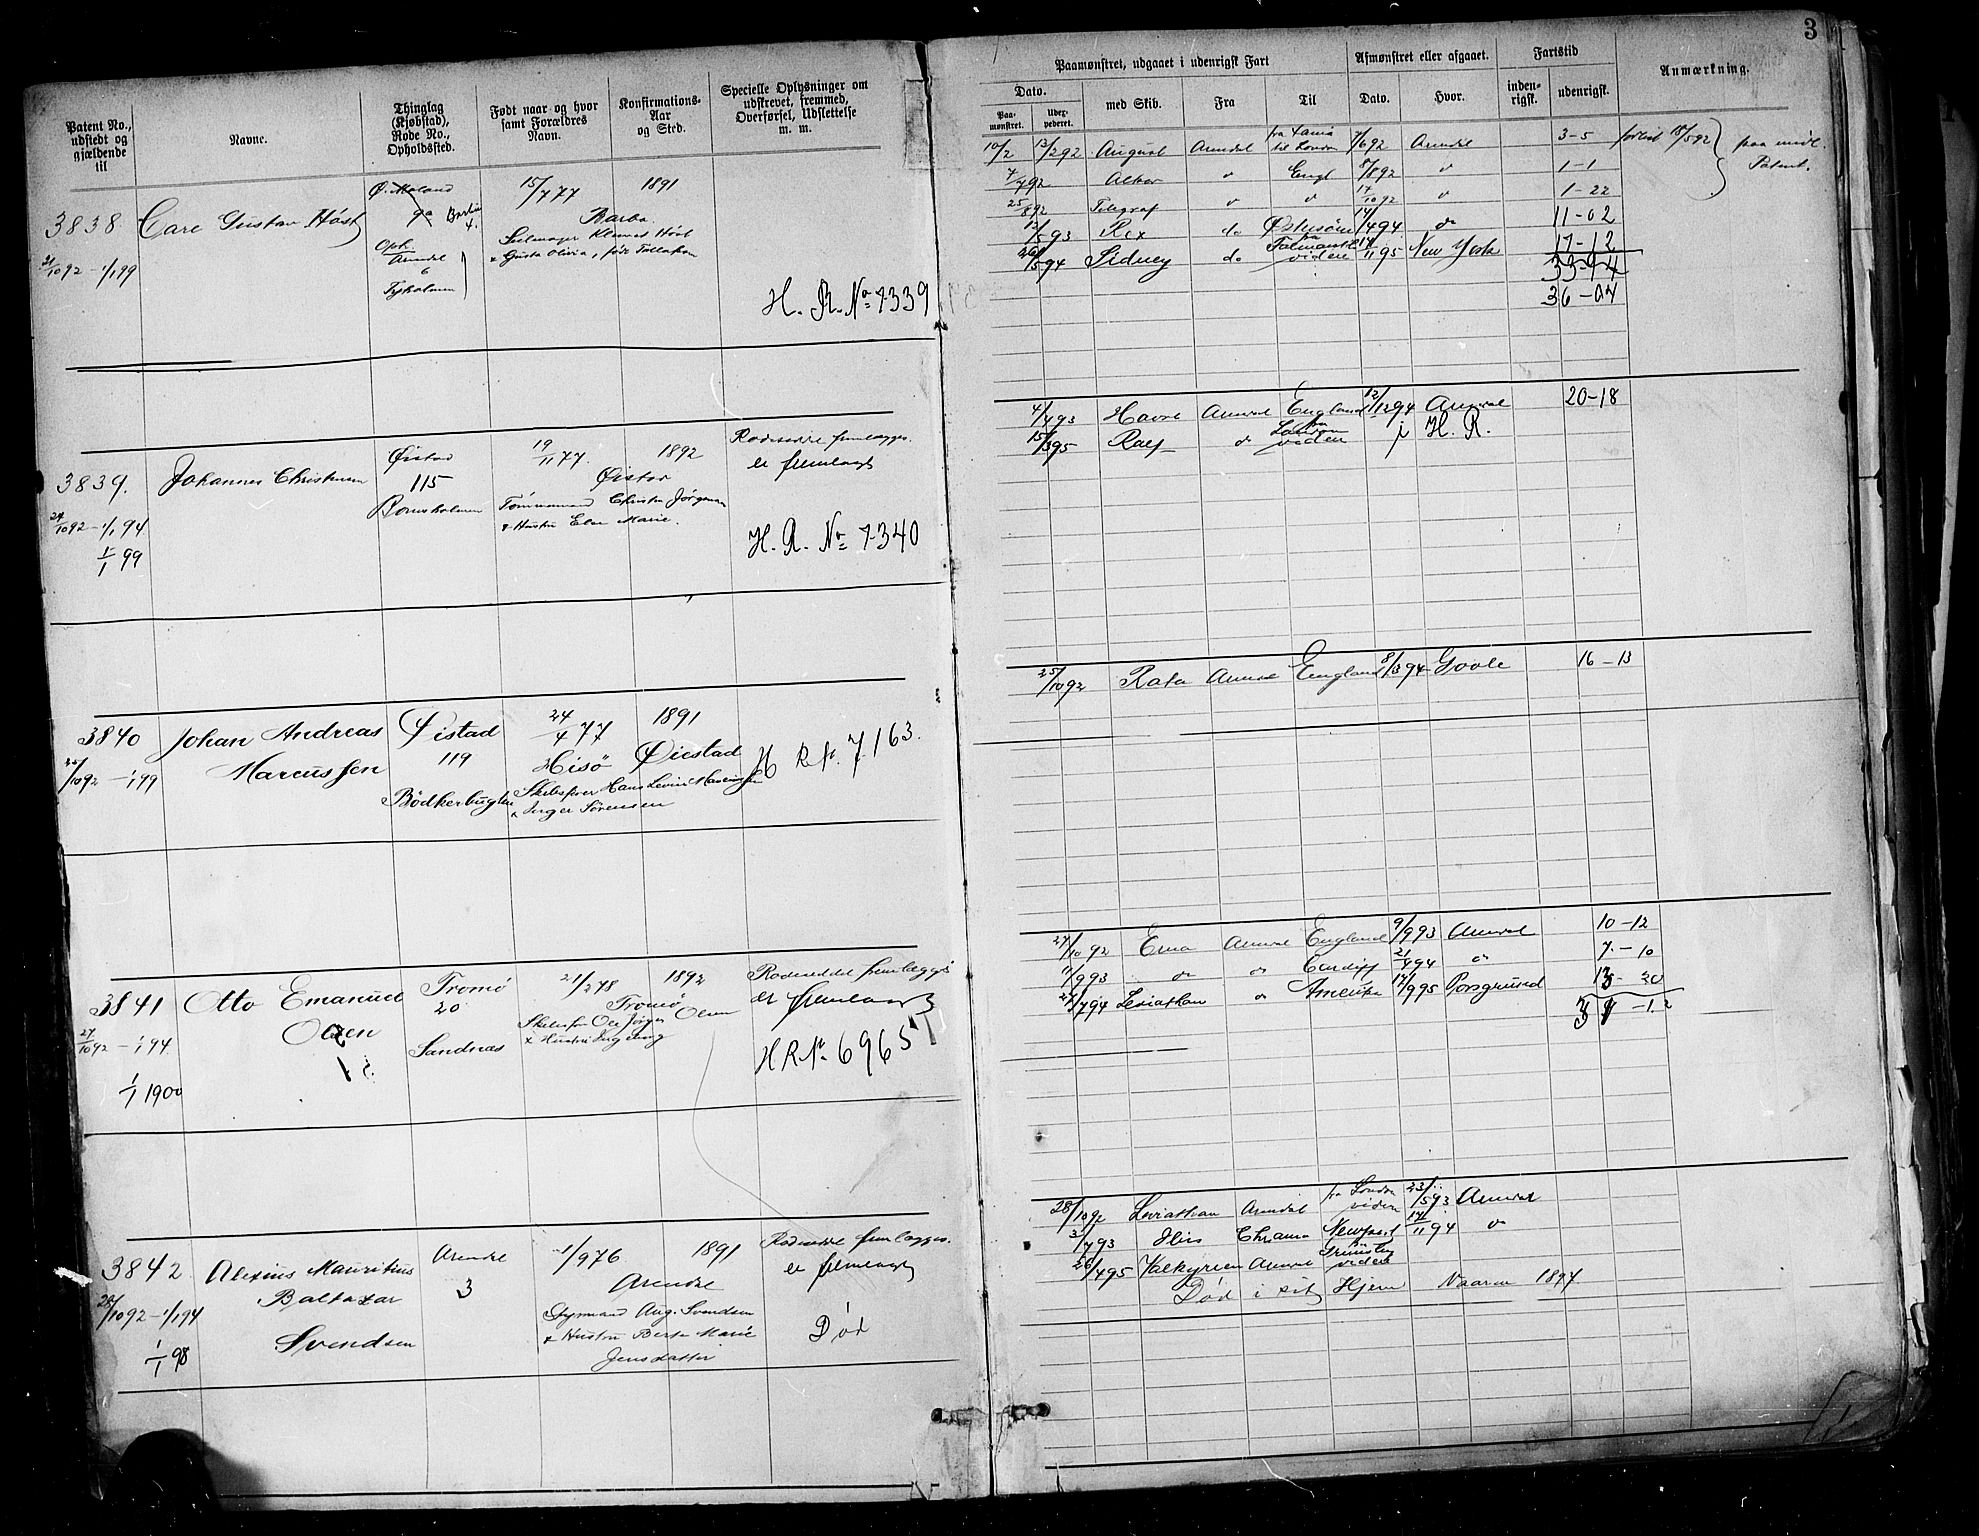 3
Patent No., udstedt og gjældende til
Navne.
Thinglag (Kjøbstad), Rode No., Opholdssted.
Født naar og hvor samt Forældres Navn.
Konfirmations-Aar og Sted.
Specielle Oplysninger om udskrevet, fremmed, Overførsel, Udslettelse m. m.
Paamønstret, udgaaet i udenrigsk Fart
Afmønstret eller afgaaet.
Fartstid
Anmærkning.
Dato.
Paa-mønstret.
med Skib.
Fra
Til
Dato.
Hvor.
inden-rigsk.
udenrigsk.
3838
21/10 92 - 1/1 99
Carl Gustav Höst
Ø. Moland
9a
Arendal
6
15/7 77
1891
Barbo
H. R. No 7339
10/2 13/2 92 August Arendal til London 7/6 92 Arendal 3-5 forlist 18/5 92
paa midl. Patent.
7/7 92 Engl 8/8 92 1-1
25/8 92 Telegraf 17/10 92 1-22
12/5 93 Rex do Østersöen 14/4 94 do 11-02
26/5 94 Sidney do videre 95 New York 17-12
33-14
36-07
3839.
24/10 92 - 1/1 94
1/1 99
Johannes Christensen
Øistad
115
Bornsholmen
19/11 77.
1892
Øistad
Tömmermand Christen Jørgensen
& Hustru Else Marie.
Rodeseddel fremlægges.
er fremlagt
H. R. No 7340
4/4 93 Arendal England 12/12 94 Arendal 20-18
15/3 95 do London videre i H. R.
3840
25/10 92 - 1/1 99
Johan Andreas
Marcussen
Øistad
119
Bödkerbugten
24/4 77
Hisö
1891
Øiestad
& Inger Sørensen
H R No. 7163.
25/10 92 Rota Arendal England 8/3 94 Goole 16-13
3841
27/10 92 - 1/1 94.
1/1 1900
Otto Emanuel
Olsen
Tromö
20
Sandnæs
21/2 78
1892
Tromö
Skibsfør Ole Jörgen Olsen
& Hustru Ingeborg
Rodeseddel fremlægges
er fremlagt
H R No 6965
27/10 92 Erna Arendal England 9/9 93 Arendal 10-12
11/9 93 do do Cardiff 21/4 94 do 7-10
27/7 94 Leviathan do Amerika 14/9 95 Porsgrund 13-20
3842
28/10 92 - 1/1 94
1/1 98
Alexius Mauritius
Baltazar
Svendsen
Arendal
3
1/9 76
1891
Arendal
Styrmand Aug. Svendsen
& Hustru Berte Marie
Jensdatter
Rodeseddel fremlægges.
er fremlagt
Død
28/10 92 Leviathan Arendal fra London videre 23/5 93 Arendal
3/7 93 Chrania Newport 17/11 94 do
26/4 95 Valkyrien Arendal Grimsby videre
Død i sit Hjem Vaaren 1897